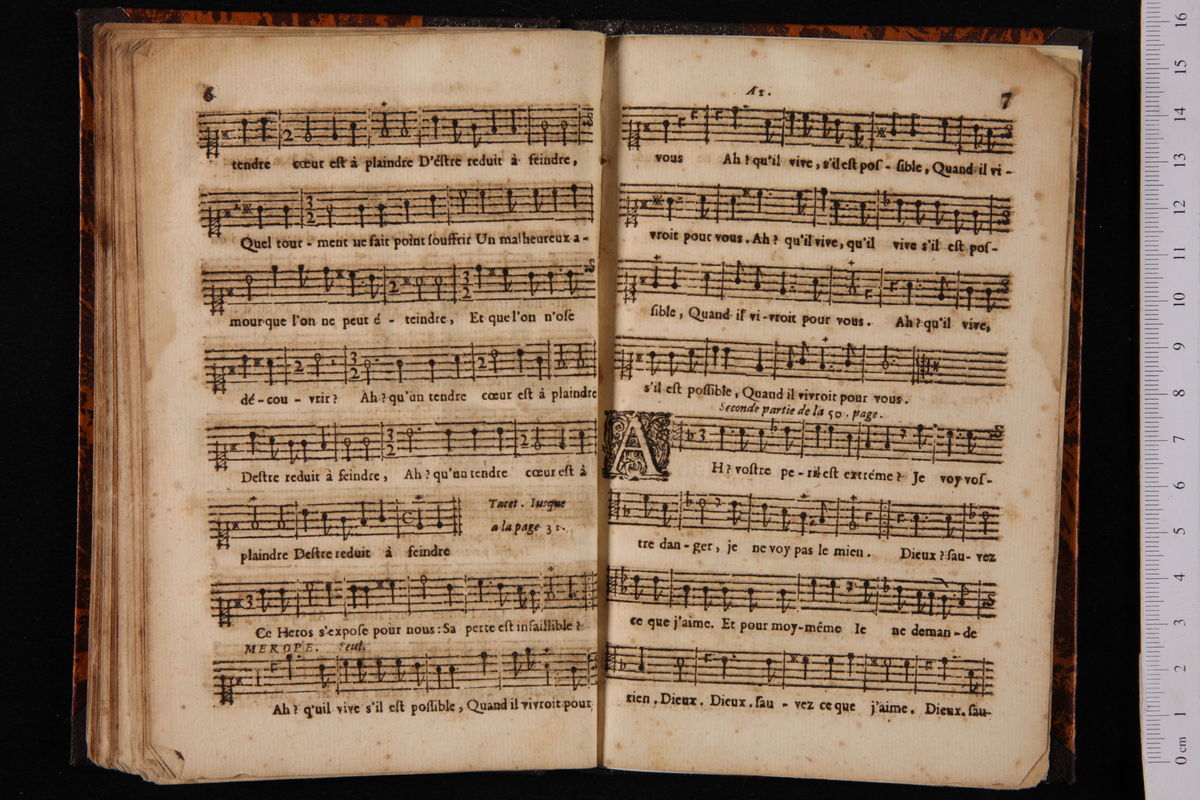 6
tendre cœur est à plaindre D'estre reduit à feindre,
Quel tour - ment ne fait point souffrir Un malheureux a-
mour que l'on ne peut é - teindre, Et que l'on n'ose
dé - cou - vrir? Ah? qu'un tendre cœur est à plaindre
Destre reduit à feindre, Ah? qu'un tendre cœur est à
Tacet. Iusque
a la page 31.
plaindre Destre reduit à feindre
Ce Heros s'expose pour nous: Sa perte est infaillible?
MEROPE. Seul.
Ah? q'uil vive s'il est possible, Quand il vivroit pour
A2.
7
vous Ah? qu'il vive, s'il est pos - sible, Quand il vi -
vroit pour vous. Ah? qu'il vive, qu'il vive s'il est pos-
sible, Quand il vi - vroit pour vous. Ah? qu'il vive,
s'il est possible, Quand il vivroit pour vous.
Seconde partie de la 50. page.
AH? vostre pe - ril est extréme? Je voy vos-
tre dan - ger, je ne voy pas le mien. Dieux? sau - vez
ce que j'aime. Et pour moy-même Ie ne deman - de
rien. Dieux. Dieux. sau - vez ce que j'aime. Dieux. sau-
0 cm 1 2 3 4 5 6 7 8 9 10 11 12 13 14 15 16